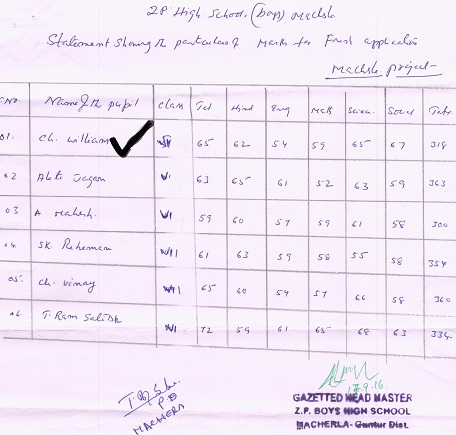 ZP High School (boys) Macherla
Statement showing the particulars of Marks for Fresh application
Macherla project-
S.NO Name of the pupil Class Tel Hind Eng Mat Scien. Social Total
01. Ch. William 65 62 54 59 65 67 318
02 Jagan VI 63 65 61 52 63 59 363
03 A Mahesh. VI 59 60 57 59 61 58 300
04. SK. Reheman VII 61 63 59 58 55 58 354
05. Ch. Vinay VII 65 60 54 57 66 58 360
06 T. Ram VI 72 59 61 65 68 63 334
17.9.16.
P.D
MACHERLA
GAZETTED HEAD MASTER
Z.P. BOYS HIGH SCHOOL
MACHERLA- Guntur Dist.